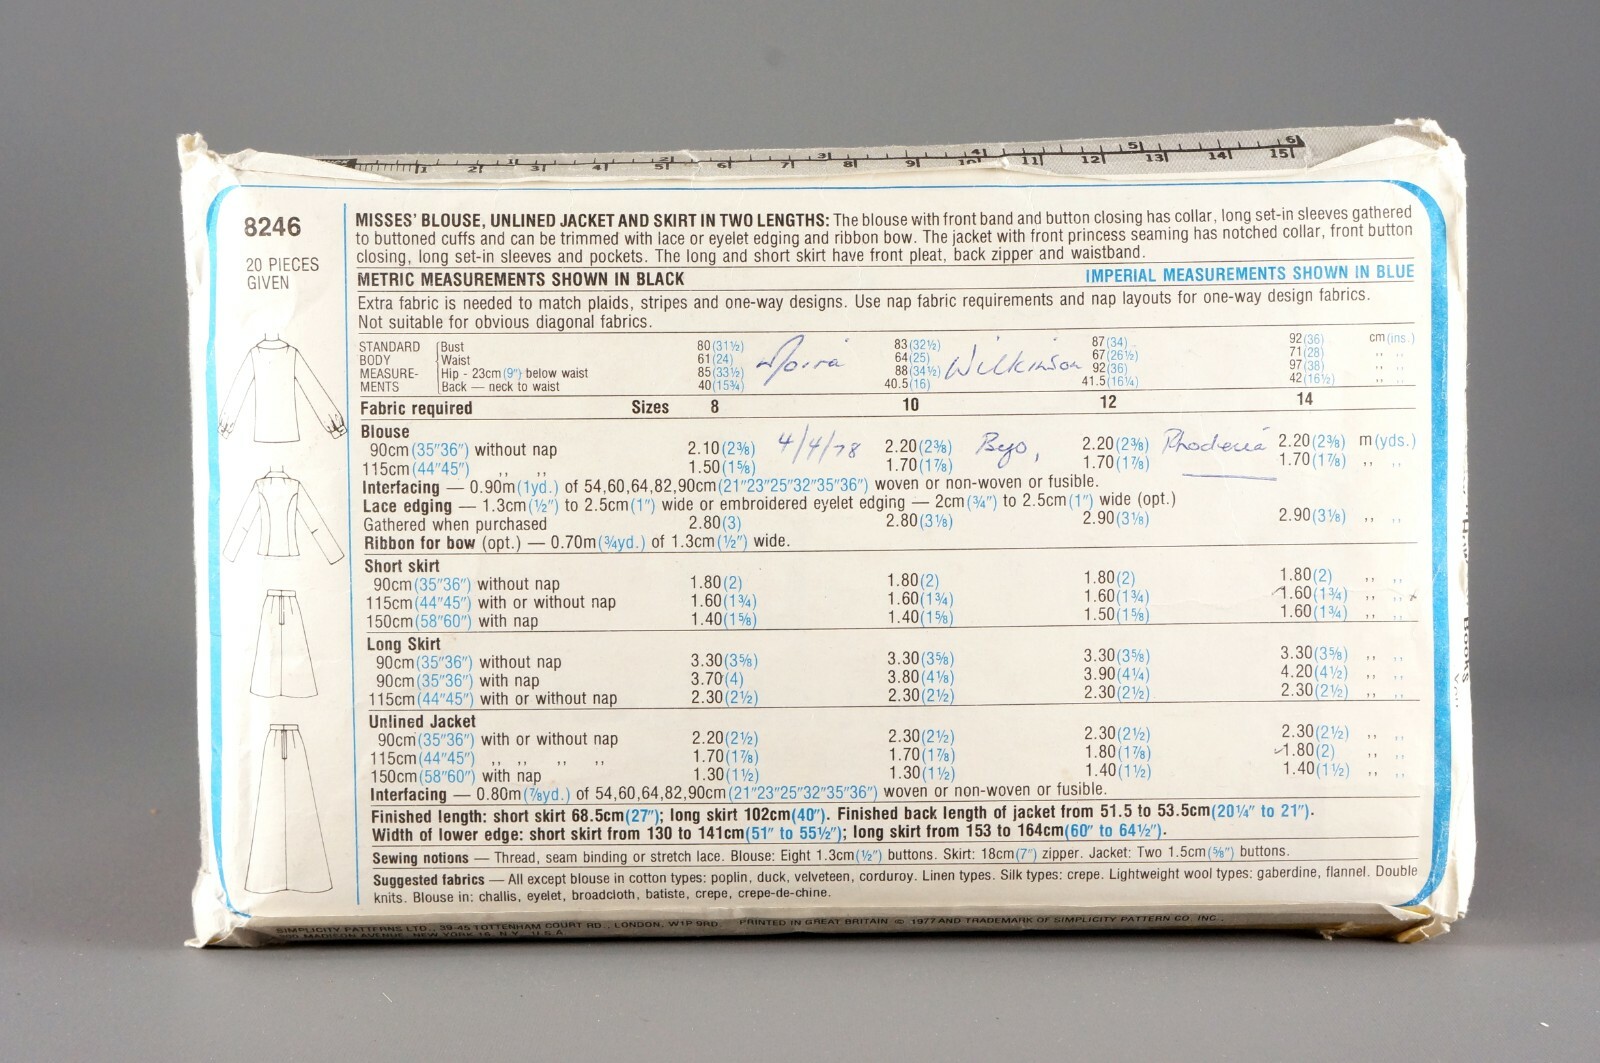 1 2 3 4 5 6 7 8 9 10 11 12 13 14 15
8246
20 PIECES
GIVEN
MISSES' BLOUSE, UNLINED JACKET AND SKIRT IN TWO LENGTHS: The blouse with front band and button closing has collar, long set-in sleeves gathered
to buttoned cuffs and can be trimmed with lace or eyelet edging and ribbon bow. The jacket with front princess seaming has notched collar, front button
closing, long set-in sleeves and pockets. The long and short skirt have front pleat, back zipper and waistband.
METRIC MEASUREMENTS SHOWN IN BLACK IMPERIAL MEASUREMENTS SHOWN IN BLUE
Extra fabric is needed to match plaids, stripes and one-way designs. Use nap fabric requirements and nap layouts for one-way design fabrics.
Not suitable for obvious diagonal fabrics.
STANDARD Bust 80(31½) 83(32½) 87(34) 92(36) cm(ins.)
BODY Waist 61(24) 64(25) 67(26½) 71(28) ,, ,,
MEASURE- Hip - 23cm(9") below waist 85(33½) 88(34½) 92(36) 97(38) ,, ,,
MENTS Back — neck to waist 40(15¾) 40.5(16) 41.5(16¼) 42(16½) ,, ,,
Moira Wilkinson
Fabric required Sizes 8 10 12 14
Blouse
90cm(35"36") without nap 2.10(2⅜) 2.20(2⅜) 2.20(2⅜) 2.20(2⅜) m(yds.)
4/4/78 Byo, Rhodesia
115cm(44"45") ,, ,, 1.50(1⅝) 1.70(1⅞) 1.70(1⅞) 1.70(1⅞) ,, ,,
Interfacing — 0.90m(1yd.) of 54,60,64,82,90cm(21"23"25"32"35"36") woven or non-woven or fusible.
Lace edging — 1.3cm(½") to 2.5cm(1") wide or embroidered eyelet edging — 2cm(¾") to 2.5cm(1") wide (opt.)
Gathered when purchased 2.80(3) 2.80(3⅛) 2.90(3⅛) 2.90(3⅛) ,, ,,
Ribbon for bow (opt.) — 0.70m(¾yd.) of 1.3cm(½") wide.
Short skirt
90cm(35"36") without nap 1.80(2) 1.80(2) 1.80(2) 1.80(2) ,, ,,
115cm(44"45") with or without nap 1.60(1¾) 1.60(1¾) 1.60(1¾) 1.60(1¾) ,, ,,
150cm(58"60") with nap 1.40(1⅝) 1.40(1⅝) 1.50(1⅝) 1.60(1¾) ,, ,,
Long Skirt
90cm(35"36") without nap 3.30(3⅝) 3.30(3⅝) 3.30(3⅝) 3.30(3⅝) ,, ,,
90cm(35"36") with nap 3.70(4) 3.80(4⅛) 3.90(4¼) 4.20(4½) ,, ,,
115cm(44"45") with or without nap 2.30(2½) 2.30(2½) 2.30(2½) 2.30(2½) ,, ,,
Unlined Jacket
90cm(35"36") with or without nap 2.20(2½) 2.30(2½) 2.30(2½) 2.30(2½) ,, ,,
115cm(44"45") ,, ,, ,, ,, 1.70(1⅞) 1.70(1⅞) 1.80(1⅞) 1.80(2) ,, ,,
150cm(58"60") with nap 1.30(1½) 1.30(1½) 1.40(1½) 1.40(1½) ,, ,,
Interfacing — 0.80m(⅞yd.) of 54,60,64,82,90cm(21"23"25"32"35"36") woven or non-woven or fusible.
Finished length: short skirt 68.5cm(27"); long skirt 102cm(40"). Finished back length of jacket from 51.5 to 53.5cm(20¼" to 21").
Width of lower edge: short skirt from 130 to 141cm(51" to 55½"); long skirt from 153 to 164cm(60" to 64½").
Sewing notions — Thread, seam binding or stretch lace. Blouse: Eight 1.3cm(½") buttons. Skirt: 18cm(7") zipper. Jacket: Two 1.5cm(⅝") buttons.
Suggested fabrics — All except blouse in cotton types: poplin, duck, velveteen, corduroy. Linen types. Silk types: crepe. Lightweight wool types: gaberdine, flannel. Double
knits. Blouse in: challis, eyelet, broadcloth, batiste, crepe, crepe-de-chine.
SIMPLICITY PATTERNS LTD., 39-45 TOTTENHAM COURT RD., LONDON, W1P 9RD. PRINTED IN GREAT BRITAIN © 1977 AND TRADEMARK OF SIMPLICITY PATTERN CO. INC.,
MADISON AVENUE, NEW YORK 16, N.Y., U.S.A.